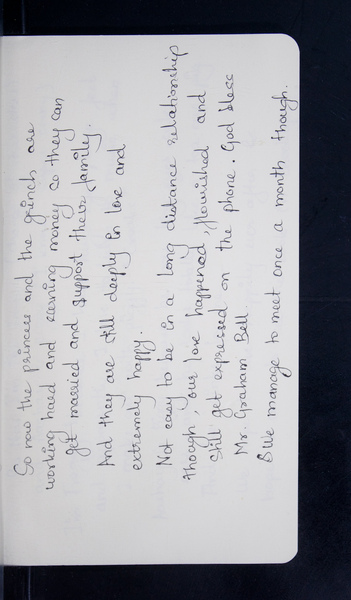 So now the princess and the grinch are
working hard and earning money so they can
get married and support their family.
And they are still deeply in love and
extremely happy.
Not easy to be in a long distance relationship
though, our love happened, flourished and
still get expressed on the phone. God bless
Mr. Graham Bell
& We manage to meet once a month though.